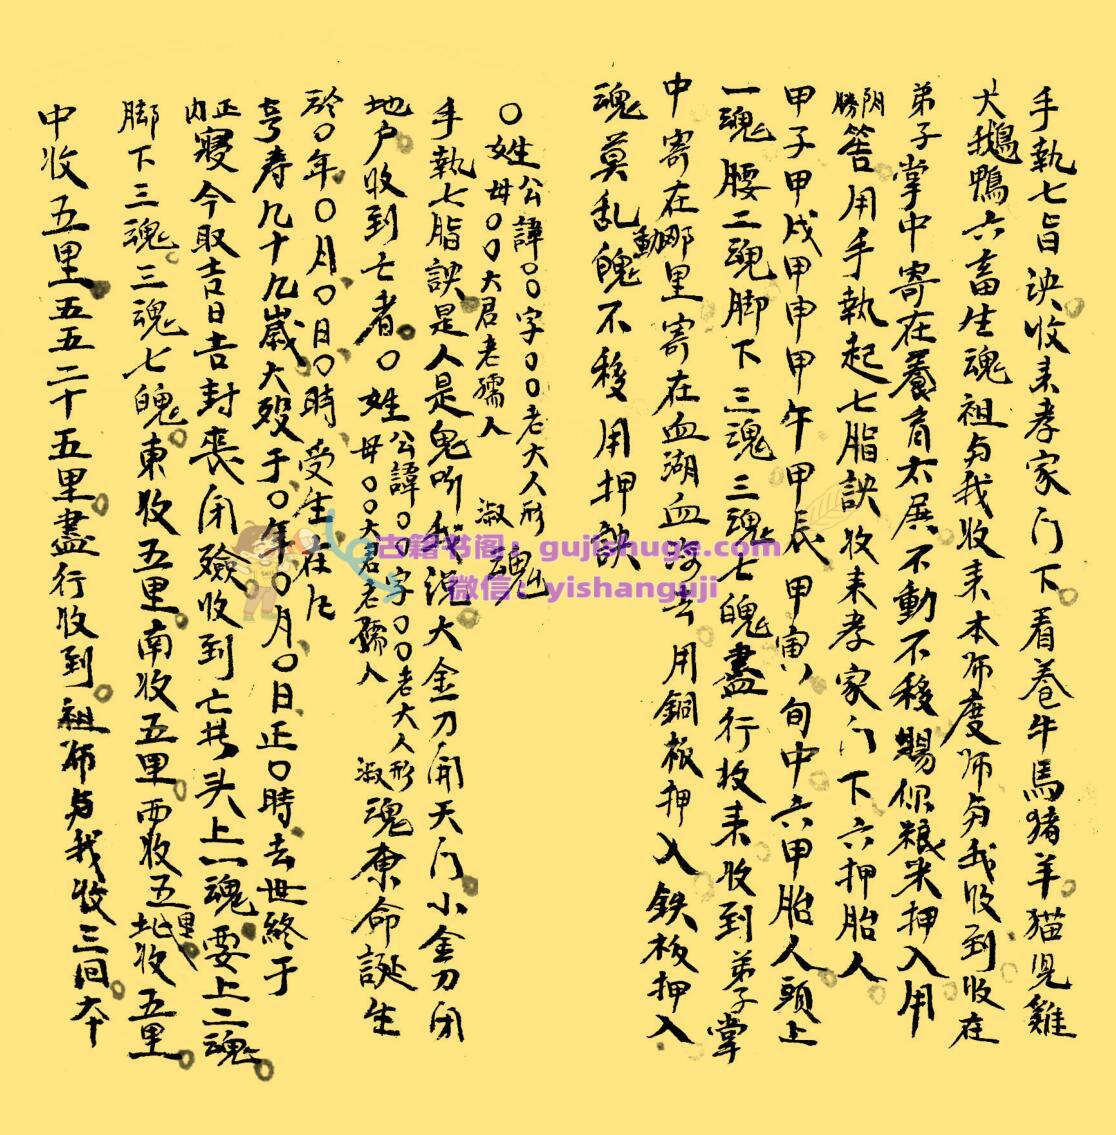 手執七旨訣收来孝家门下看養牛馬猪羊猫児雞
犬鵝鴨六畜生魂祖与我收来本师度师与我收到收在
弟子掌中寄在養育太展不動不移賜你粮米押入用
陰勝筶用手執起七脂訣收来孝家门下六押胎人
甲子甲戌甲申甲午甲辰甲寅八旬中六甲胎人頭上
一魂腰二魂脚下三魂三魂七魄盡行收来收到弟子掌
中寄在那里寄在血湖血河去用銅板押入鉄板押入
魂莫乱動魄不移用押訣
〇姓公諱〇〇字〇〇老大人形
母〇〇大君老孺人淑魂
手執七脂訣是人是鬼听我说大金刀開天门小金刀闭
地户收到亡者〇姓公諱〇〇字〇〇老大人形
母〇〇大君老孺人淑魂禀命誕生
於〇年〇月〇日〇時受生在凡
亨寿凡十凡歲大殁于〇年〇月〇日正〇時去世終于
正内寢今取吉日吉封喪闭殮收到亡者头上一魂要上二魂
脚下三魂三魂七魄東收五里南收五里西收五里北收五里
中收五里五五二十五里盡行收到祖师与我收三回本
古籍书阁：gujishuge.com
微信：yishanguji